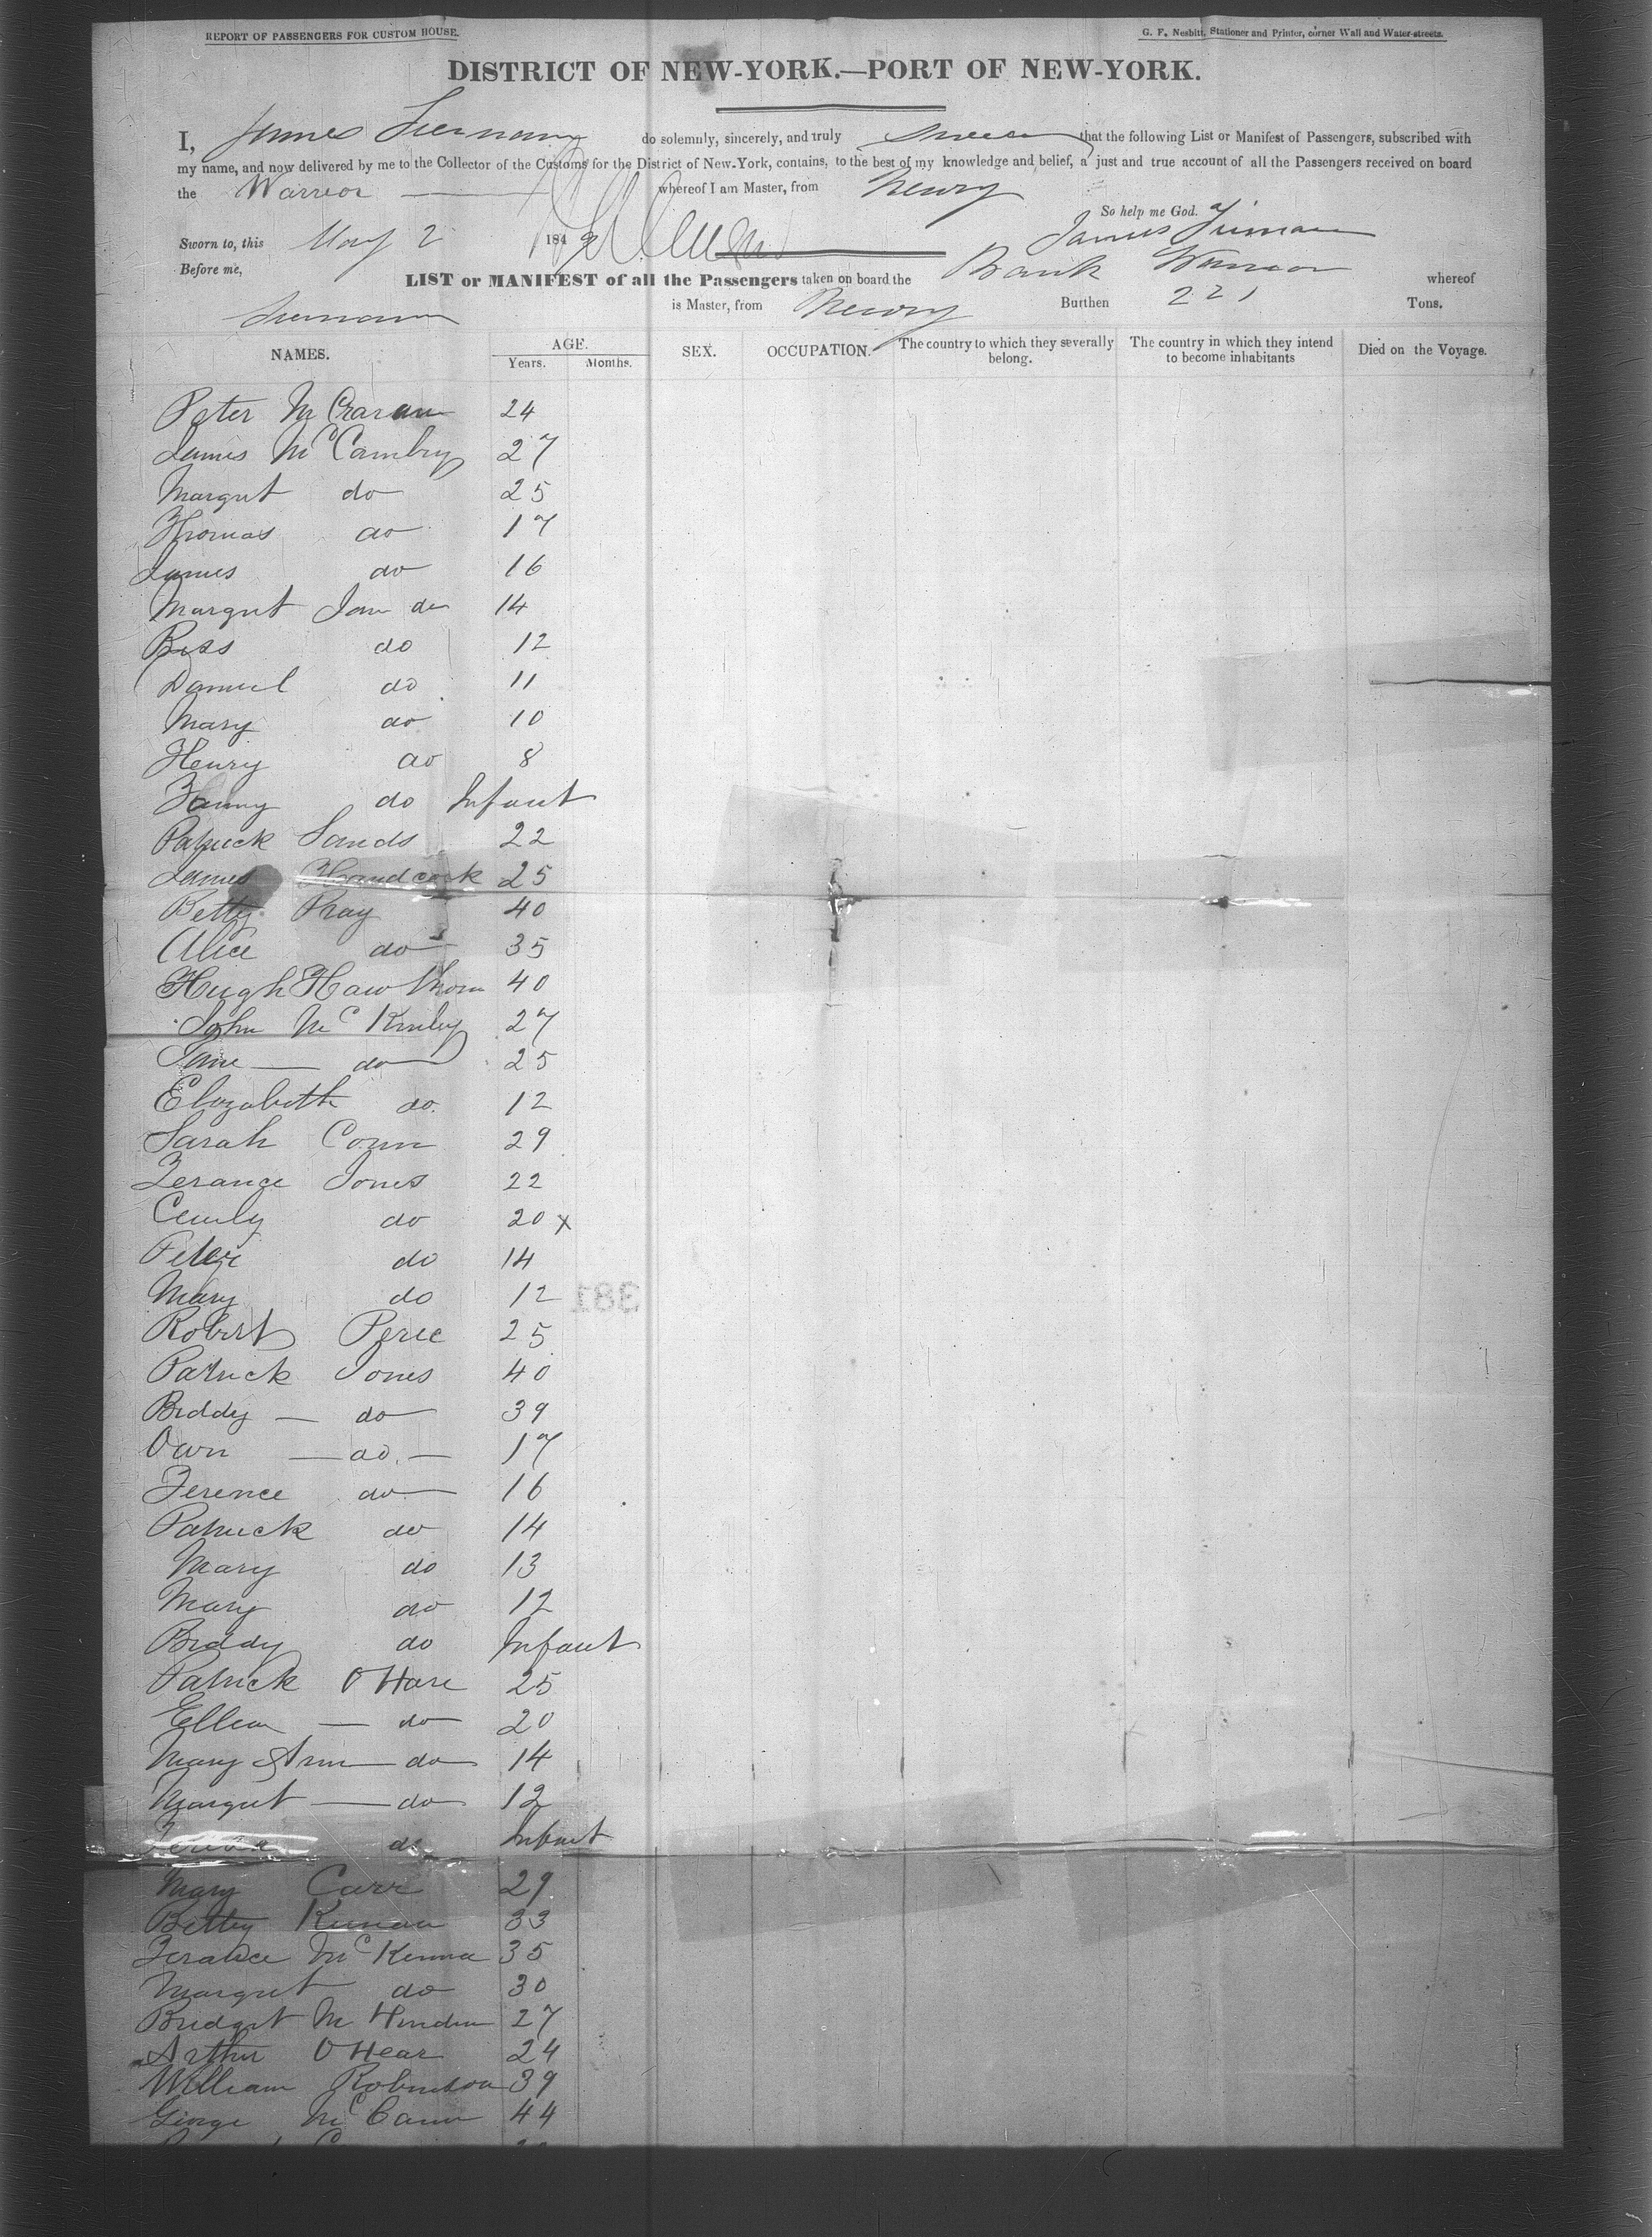 REPORT OF PASSENGERS FOR CUSTOM HOUSE.
G. F. Nesbitt, Stationer and Printer, corner Wall and Water-streets.
DISTRICT OF NEW-YORK.—PORT OF NEW-YORK.
I, James do solemnly, sincerely, and truly swear that the following List or Manifest of Passengers, subscribed with
my name, and now delivered by me to the Collector of the Customs for the District of New-York, contains, to the best of my knowledge and belief, a just and true account of all the Passengers received on board
the Warrior whereof I am Master, from Newry
So help me God.
Sworn to, this May 2 1849 James
Before me,
LIST or MANIFEST of all the Passengers taken on board the Warrior whereof
is Master, from Newry Burthen 221 Tons.
NAMES. AGE. Years. Months. SEX. OCCUPATION. The country to which they severally belong. The country in which they intend to become inhabitants Died on the Voyage.
Peter 24
James McCambry 27
Margret do 25
Thomas do 17
James do 16
Margret Jane do 14
Bess do 12
Daniel do 11
Mary do 10
Henry do 8
Fanny do Infant
Patrick Sands 22
James Handcock 25
Betty Pray 40
Alice do 35
Hugh Hawthorn 40
John McKinley 27
Jane do 25
Elizabeth do. 12
Sarah Conn 29
Terance Jones 22
do 20 x
Peter do 14
Mary do 12
381
Robert Perce 25
Patrick Jones 40
Biddy — do 39
Own — do. — 17
Terence do 16
Patrick do 14
Mary do 13
Mary do 12
Biddy do Infant
Patrick O Hare 25
Ellen — do 20
Mary Ann do 14
Margret — do 12
do Infant
Mary Carr 29
Betty Kienan 33
Terance McKenna 35
Margret do 30
Bridget 27
Arthur O Hear 24
William Robinson 39
George McCann 44